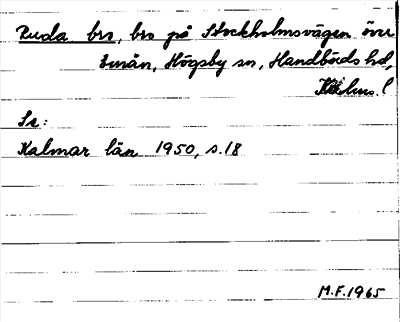 Ruda bro, bro på Stockholmsvägen över
Emån, Högsby sn, Handbörds hd,
l
Se:
Kalmar län 1950, s.18
M.F.1965